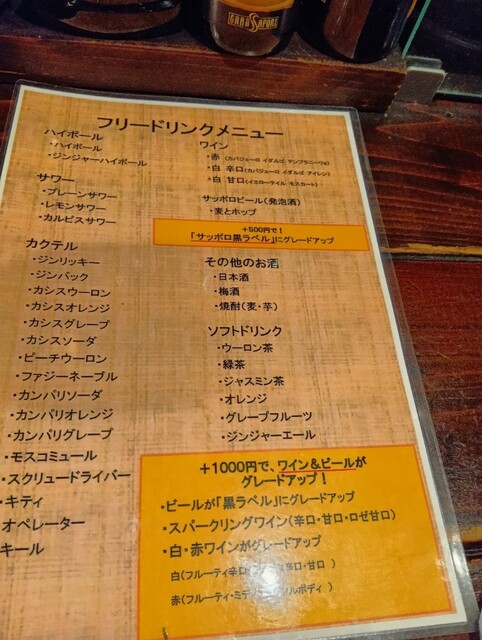 GRAN SAPORE
フリードリンクメニュー
ハイボール
・ハイボール
・ジンジャーハイボール
サワー
・プレーンサワー
・レモンサワー
・カルピスサワー
カクテル
・ジンリッキー
・ジンバック
・カシスウーロン
・カシスオレンジ
・カシスグレープ
・カシスソーダ
・ピーチウーロン
・ファジーネーブル
・カンパリソーダ
・カンパリオレンジ
・カンパリグレープ
・モスコミュール
・スクリュードライバー
・キティ
オペレーター
キール
ワイン
・赤 (カバジェーロ イダルゴ テンプラニーリョ)
・白 辛口(カバジェーロ イダルゴ アイレン)
・白 甘口(イエローテイル モスカート)
サッポロビール(発泡酒)
・麦とホップ
+500円で!
「サッポロ黒ラベル」にグレードアップ
その他のお酒
・日本酒
・梅酒
・焼酎(麦・芋)
ソフトドリンク
・ウーロン茶
・緑茶
・ジャスミン茶
・オレンジ
・グレープフルーツ
・ジンジャーエール
+1000円で、ワイン&ビールが
グレードアップ!
・ビールが「黒ラベル」にグレードアップ
・スパークリングワイン(辛口・甘口・ロゼ甘口)
・白・赤ワインがグレードアップ
白(フルーティ辛口 辛口・甘口 )
赤(フルーティ・ミディ ルボディ )